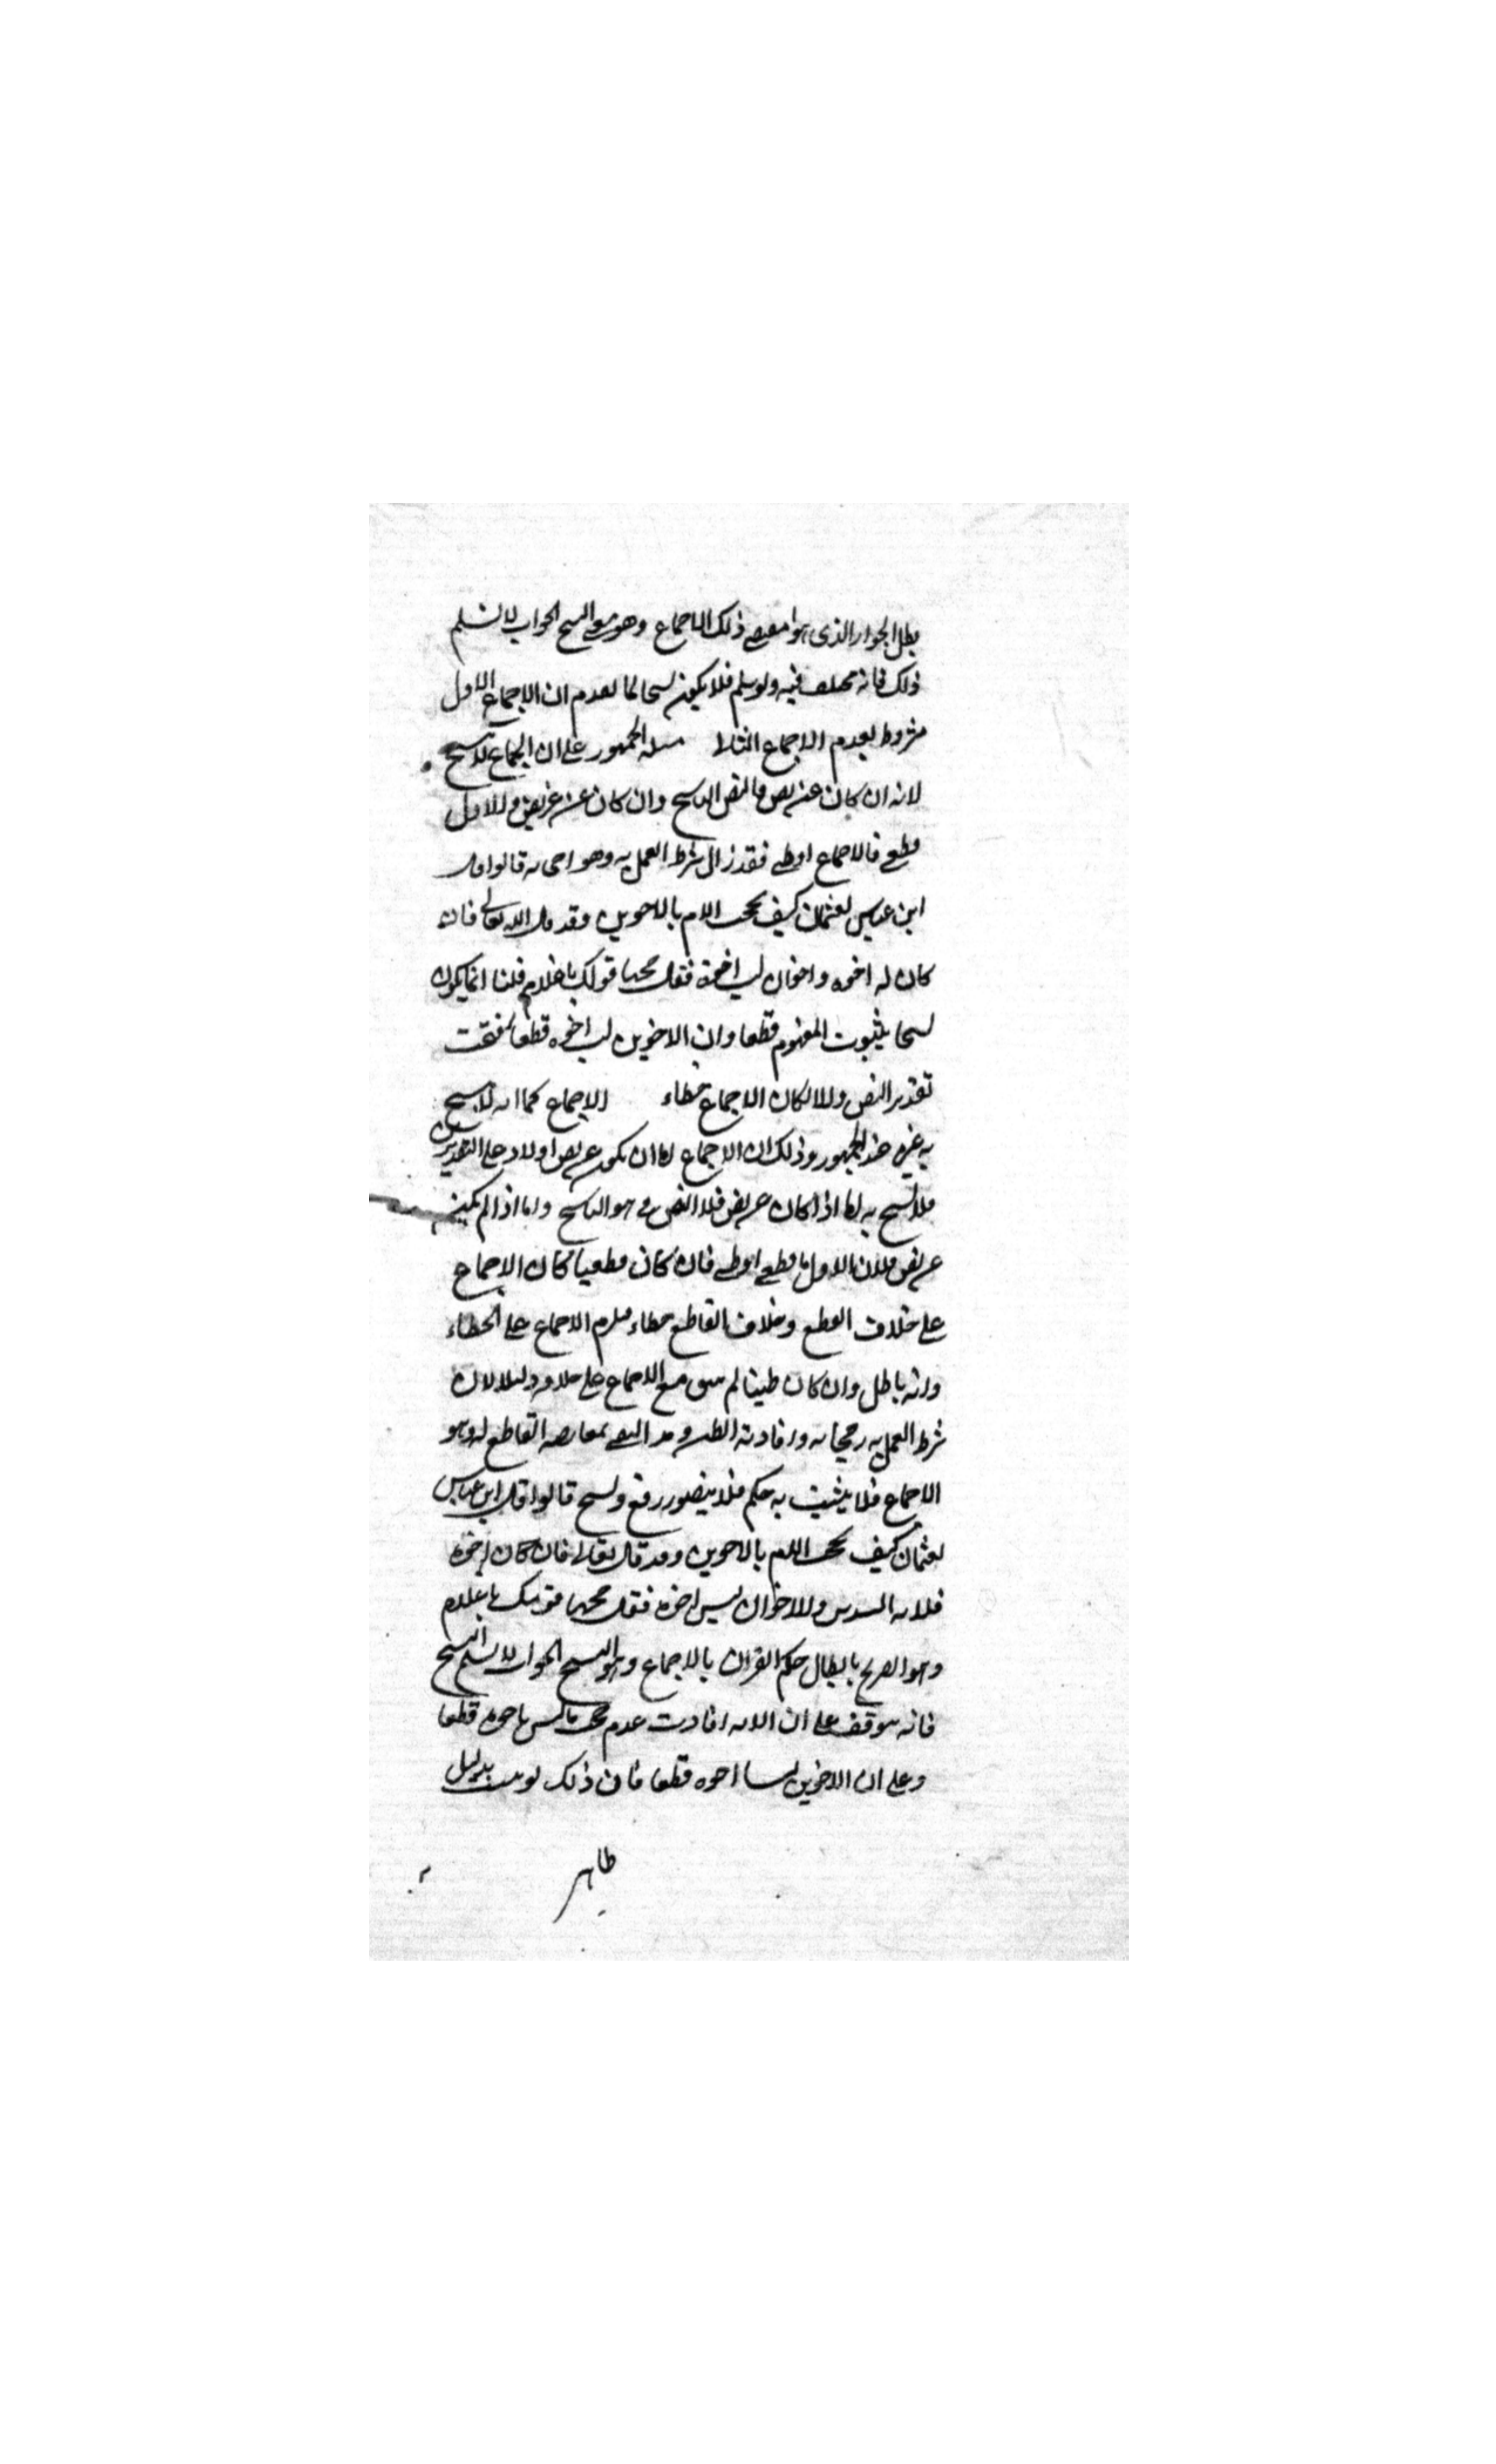 بطل الجواز الذى هو مقتضى ذلك الاجماع وهو معنى النسخ الجواب لا نسلم
ذلك فانه مختلف فيه ولو سلم فلا يكون نسخا لما تقدم ان الاجماع الاول
مشروط بعدم الاجماع الثانى مسئلة الجمهور على ان الاجماع لا ينسخ
لانه ان كان عن نص فالنص الناسخ وان كان عن غير نص والاول
قطعى فالاجماع او ظنى فقد زال شرط العمل به وهو رجحانه قالوا قال
ابن عباس لعثمان كيف تحجب الام بالاخوين وقد قال الله تعالى فان
كان له اخوه والاخوان ليسا اخوة فقال حجبها قومك يا غلام قلنا انما يكون
نسخا بثبوت المفهوم قطعا وان الاخوين ليسا اخوه قطعا فيجب
تقدير النص والا لكان الاجماع خطاء الاجماع كما انه لا ينسخ
به غيره عند الجمهور وذلك ان الاجماع اما ان يكون عن نص اولا وعلى التقديرين
فلا نسخ به اما اذا كان عن نص فلان النص هو الناسخ واما اذا لم يكن
عن نص فلان الاول اما قطعى او ظنى فان كان قطعيا كان الاجماع
على خلاف القطع وخلاف القاطع خطاء فيلزم الاجماع على الخطاء
وانه باطل وان كان ظنيا لم يبق مع الاجماع على خلافه دليلا لان
شرط العمل به رجحانه وافادته الظن وقد انتفى بمعارضة القاطع له وهو
الاجماع فلا يثبت به حكم فلا يتصور رفع ونسخ قالوا قال ابن عباس
لعثمان كيف تحجب الام بالاخوين وقد قال تعالى فان كان له اخوة
فلامه السدس والاخوان ليس اخوة فقال حجبها قومك يا غلام
وهو تصريح بابطال حكم القران بالاجماع وهو النسخ الجواب لا نسلم النسخ
فانه يتوقف على ان الاية افادت عدم حجب ما ليس باخوة قطعا
وعلى ان الاخوين ليسا اخوه قطعا فان ذلك لو ثبت بدليل
ظاهر